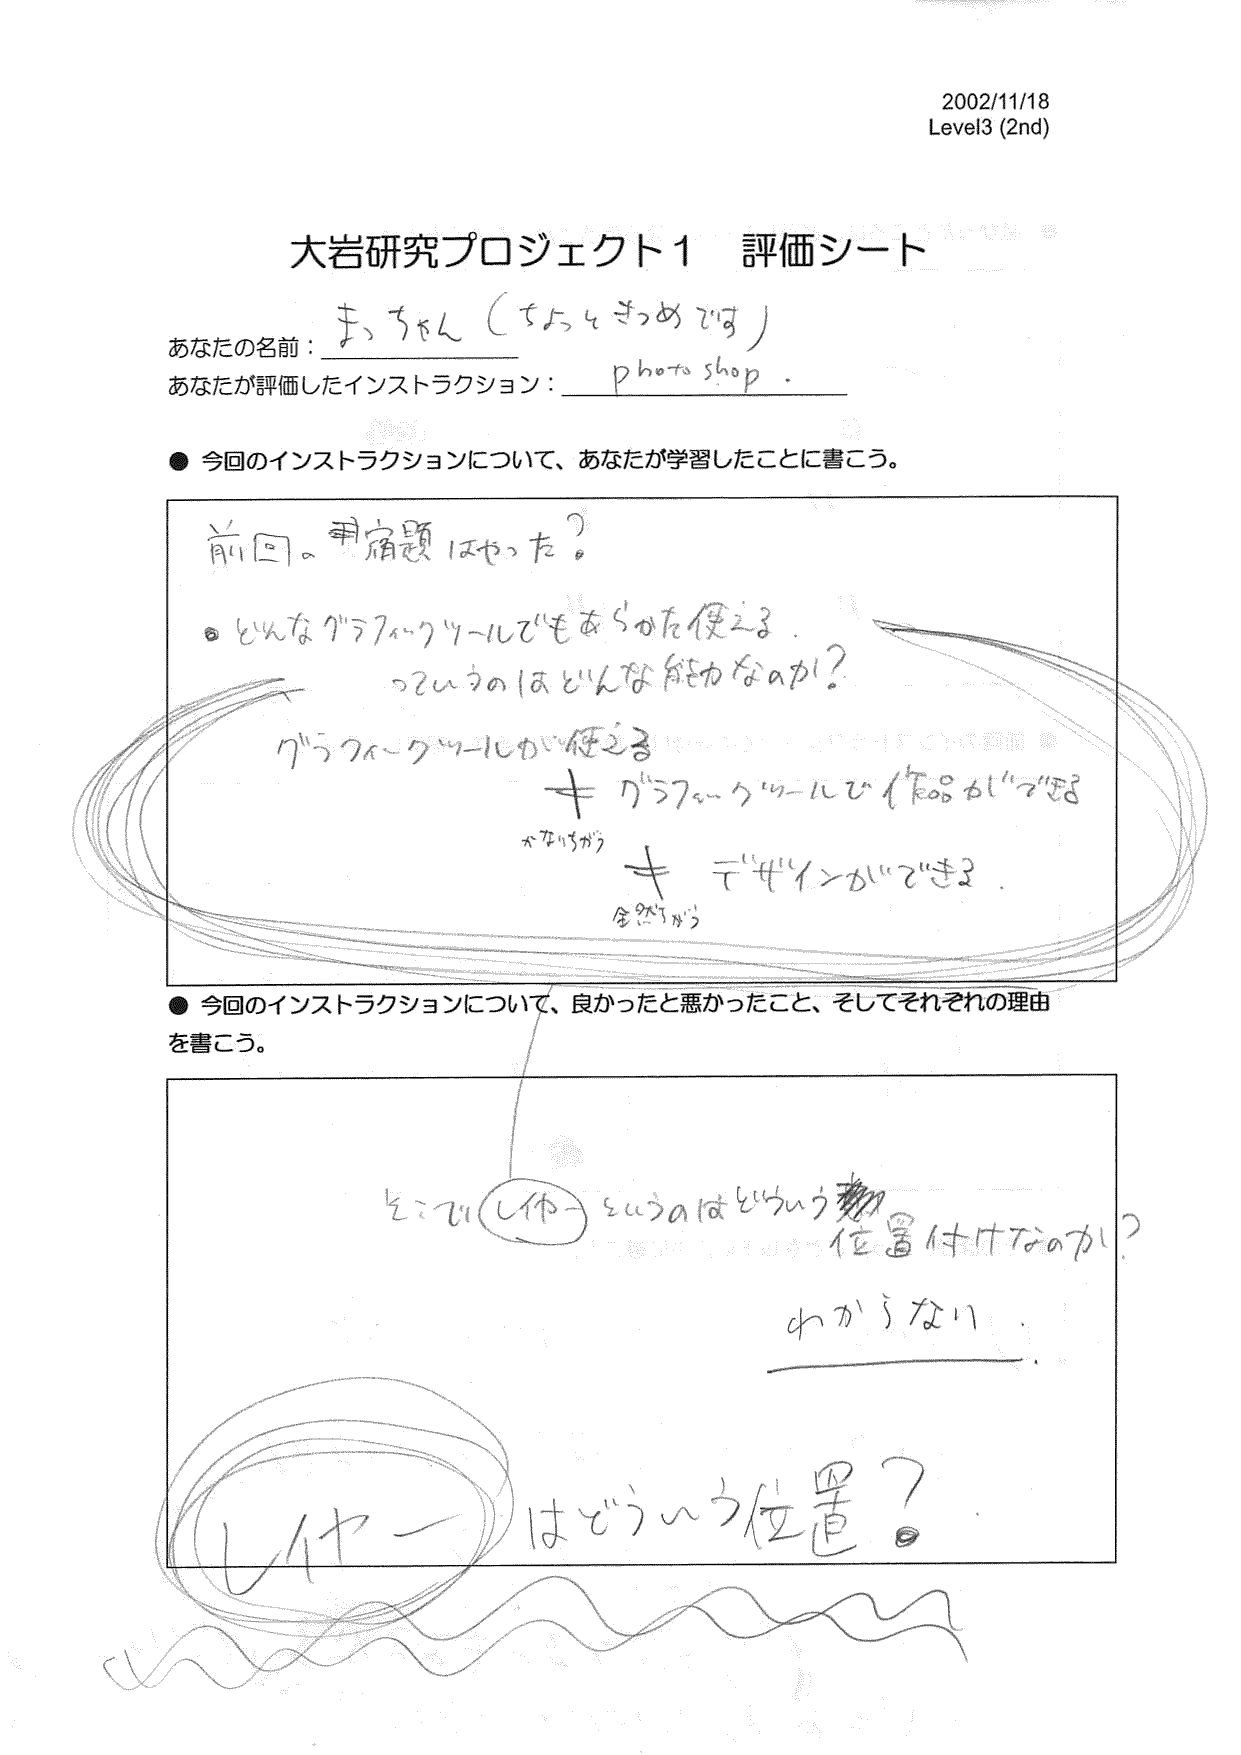 2002/11/18
Level3 (2nd)
大岩研究プロジェクト1　評価シート
あなたの名前：まっちゃん（ちょっときつめです）
あなたが評価したインストラクション：photoshop.
● 今回のインストラクションについて、あなたが学習したことに書こう。
前回の宿題はやった？
・どんなグラフィックツールでもあらかた使える.
っていうのはどんな能力なのか？
グラフィックツールが使える
≠ グラフィックツールで作品ができる
かなりちがう
≠ デザインができる.
全然ちがう
● 今回のインストラクションについて、良かったと悪かったこと、そしてそれぞれの理由
を書こう。
そこでレイヤーというのはどういう
位置付けなのか？
わからない.
レイヤーはどういう位置？